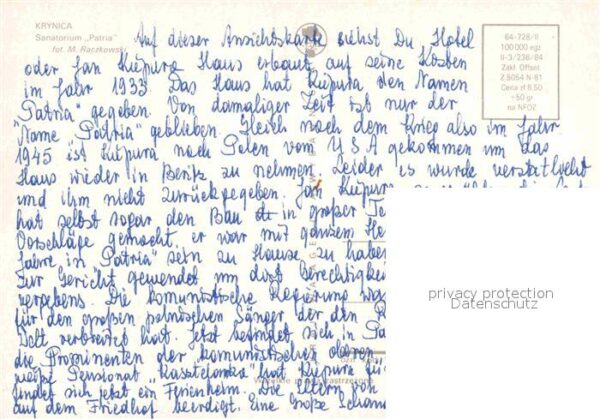 KRYNICA
Sanatorium „Patria"
fot. M. Raczkowski
64-728/II
100 000 egz
II-3/236/84
Zakł. Offset
Z.5054 N-81
Cena zł 8,50
+50 gr
na NFOZ
Auf dieser Ansichtskarte siehst Du Hotel
oder Jan Kiepura Haus erbaut auf seine Kosten
im Jahr 1933. Das Haus hat Kiepura den Namen
„Patria" gegeben. Von damaliger Zeit ist nur der
Name "Patria" geblieben. Gleich nach dem Krieg also im Jahr
1945 ist Kiepura nach Polen vom USA gekommen um das
Haus wieder in Besitz zu nehmen. Leider es wurde verstatlicht
und ihm nicht zurückgegeben. Jan
hat selbst sogar den Bau in großer
Vorschläge gemacht, er war mit ganzem
Jahre in "Patria" sein zu Hause zu haben
zur Gericht gewendet um dort
vergebens. Die komunistische Regierung
für den großen polnischen Sänger der den
Welt verbreitet hat. Jetzt befindet sich in
die Prominenten der komunistischen oberen
Pensionat "
hat Kiepura für
findet sich jetzt ein Ferienheim. Die Eltern von
auf dem Friedhof beerdigt. Eine Große
privacy protection
Datenschutz